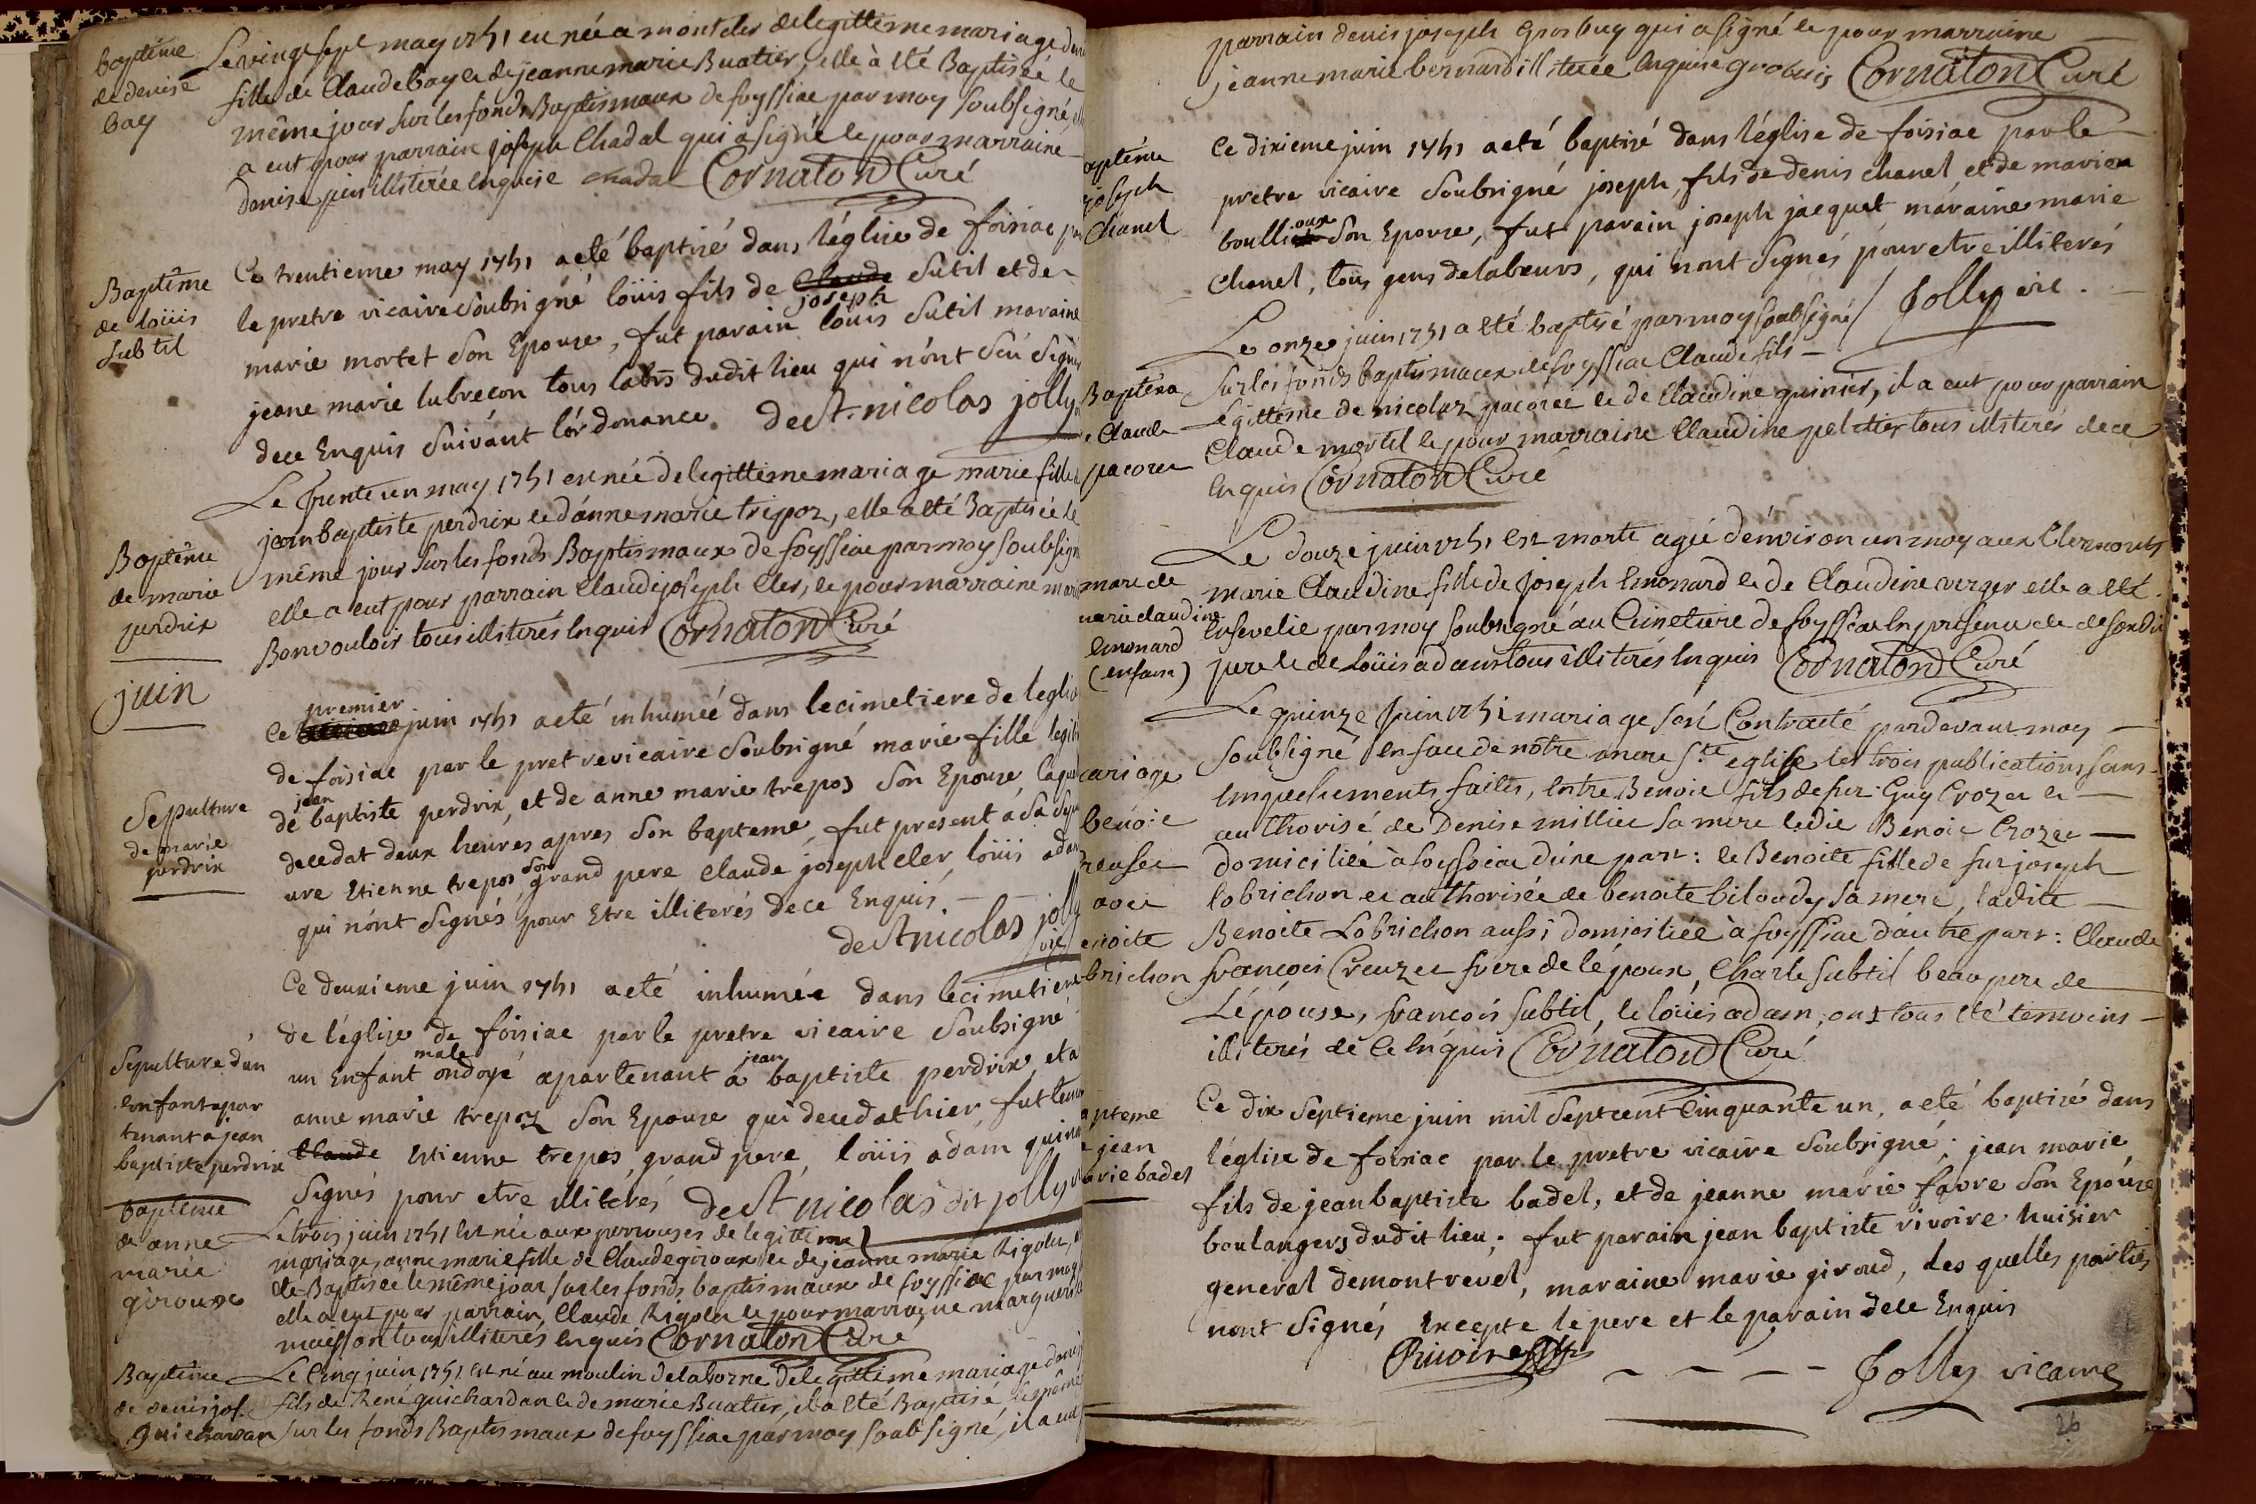 baptême
de denise
bay
Le vingt sept may 1751 est née a montcler de legittime mariage
fille de Claude bay et de jeanne marie Buatier, elle à eté Baptisée le
même jour sur les fonds Baptismaux de foyssiac par moy soubsigné,
a eut pour parrain joseph Chadal qui a signé et pour marraine
denise illiterée enquise chadal Cornaton Curé
Baptême
de loüis
subtil
Ce trentieme may 1751 a eté baptisé dans l'église de foisiac
le pretre vicaire soubsigné loüis fils de Claude joseph sutil et de
marie mortet son Epouse, fut parain loüis sutil maraine
jeane marie lubrecon tous labrs dudit lieu qui n'ont sçu signé
de ce Enquis suivant l'ordonance. de St. nicolas jolly
Baptême
de marie
perdrix
Le trente un may 1751 est née de legittime mariage marie fille
jean baptiste perdrix et d'anne marie trepoz, elle a eté Baptisée le
même jour sur les fonds Baptismaux de foyssiac par moy soubsigné
elle a eut pour parrain Claude joseph Cler, et pour marraine
Bonvouloir tous illiterés enquis Cornaton Curé
juin
Sepulture
de marie
perdrix
Ce premier juin 1751 a eté inhumée dans le cimetiere de leglise
de foisiac par le pretre vicaire soubsigné marie fille
de jean baptiste perdrix, et de anne marie trepos son Epouse
decedat deux heures apres son bapteme, fut present à sa
ure Etienne trepos son grand pere claude joseph cler loüis adam
qui n'ont signés pour Etre illiterés de ce Enquis. —
de St nicolas jolly
vic
Sepulture d'un
enfant apar
tenant a jean
baptiste perdrix
Ce deuxieme juin 1751 a eté inhumée dans le cimetiere
de l'église de foisiac par le pretre vicaire soubsigné
un Enfant male ondoyé apartenant a jean baptiste perdrix, et a
anne marie trepoz son Epouse qui decedat hier fut
Claude Etienne trepos, grand pere, loüis adam
signés pour etre illiterés de St nicolas dit jolly
baptême
de anne
marie
giroux
Le trois juin 1751 est née aux perrouses de legittime
mariage, anne marie fille de Claude giroux et de jeanne marie Rigolet,
eté Baptisée le même jour sur les fonds baptismaux de foyssiac par moy
elle a eut pour parrain, Claude Rigolet et pour marraine
tous illiterés enquis Cornaton Curé
Baptême
de denis jos.
guichardan
Le Cinq juin 1751 est né au moulin de laborne de legittime mariage denis
fils de René guichardan et de marie Buatier, il a eté Baptisé le même
sur les fonds Baptismaux de foyssiac par moy soubsigné, il a eut
parrain denis joseph grosbuy qui a signé et pour marraine
jeanne marie bernard illiterée enquise Cornaton Curé
apteme
joseph
Chanel
Ce dixieme juin 1751 a eté baptisé dans l'église de foisiac par le
pretre vicaire soubsigné joseph, fils de denis chanel et de marie
boullioux son Epouse, fut parain joseph jacquet maraine marie
Chanel, tous gens de labeurs, qui nont signés pour etre illiterés
Jolly vic.
Baptême
Claude
pacorer
Le onze juin 1751 a eté baptisé par moy soubsigné
sur les fonds baptismaux de foyssiac Claude fils
Legittime de nicolas pacoret et de Claudine quinier, il a eut pour parrain
Claude mortel et pour marraine Claudine peletier tous illiterés de ce
enquis Cornaton Curé
marie claudine
emonard
(enfant)
Le douze juin 1751 est morte agée d'environ un moy aux
marie Claudine fille de Joseph Emonard et de Claudine verger elle a eté
ensevelie par moy soubsigné au Cimetiere de foyssiac en presence de de son dit
pere et de Loüis adam tous illiterés enquis Cornaton Curé
ariage
benoit
avec
enoite
brichon
Le quinze Juin 1751 mariage s'est Contracté pardevant moy
soubsigné en face de nôtre mere Ste eglise les trois publications sans
empechements faites, entre Benoit fils de feu Guy Crozet et
authorisé de Denise milliet sa mere ledit Benoit Crozet
domicilié à foyssiac d'une part: et Benoite fille de feu joseph
lobrichon et authorisée de benoite biloudy sa mere, ladite
Benoite Lobrichon aussi domiciliée à foyssiac d'autre part: Claude
françois Creuzet frere de l'époux, Charle subtil beaupere de
L'épouse, françois subtil, et loüis adam, ont tous eté temoins
illiterés de ce enquis Cornaton Curé
apteme
jean
arie badel
Ce dix septieme juin mil septcent Cinquante un, a eté baptisé dans
l'église de foisiac par le pretre vicaire soubsigné; jean marie
fils de jean baptiste badel, et de jeanne marie favre son Epouse
boulangers dudit lieu; fut parain jean baptiste rivoire huisier
general de montrevel, maraine marie giroud, les quelles parties
nont signés Excepte le pere et le parain de ce Enquis
Rivoire
Jolly vicaire
26